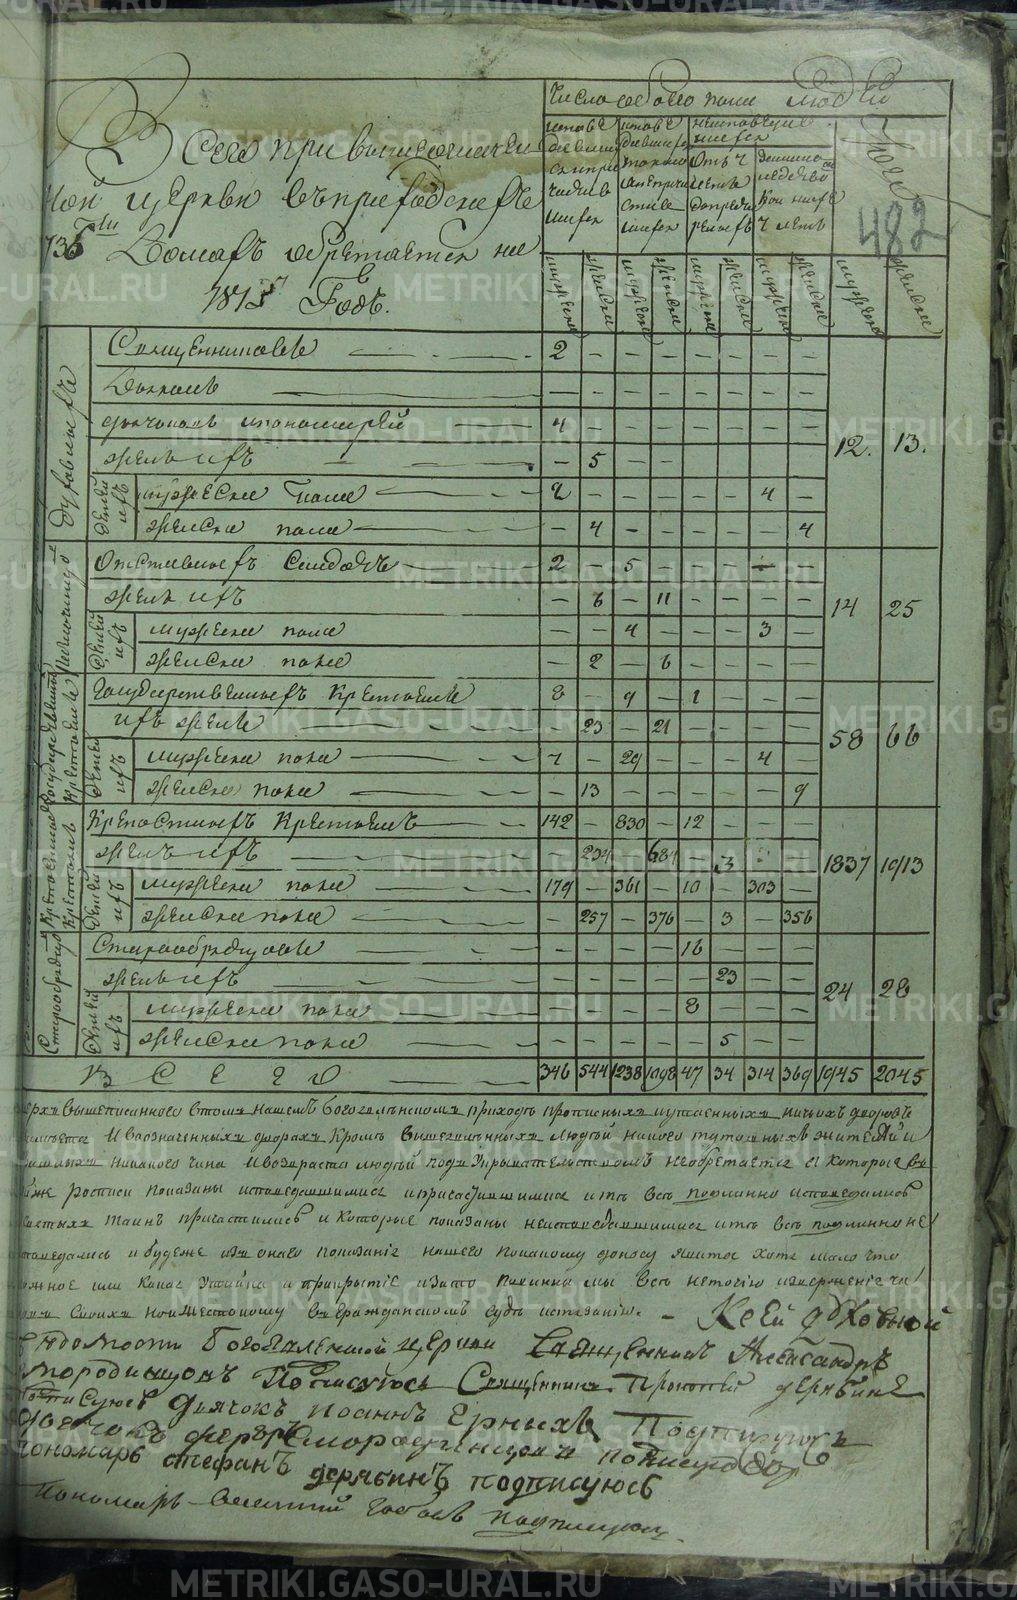 Число обоего пола людей
482
Всего при вышеозначен
ной церкви въ приходскихъ
736 ти Домахъ обретается на
181 Годъ.
мужеска женска мужеска женска мужеска женска мужеска женска мужеска женска
Духовныхъ
Священниковъ 2 – – – – – – –
Диаконъ – – – – – – – –
дьячковъ и пономарей 4 – – – – – – –
женъ ихъ – 5 – – – – – –
12. 13.
Детей ихъ
мужеска пола 2 – – – – – 4 –
женска пола – 4 – – – – – 4
Отставныхъ Солдатъ 2 – 5 – – – – –
женъ ихъ – 6 – 11 – – – –
14 25
Детей ихъ
мужеска пола – – 4 – – – 3 –
женска пола – 2 – 6 – – – –
Государственныхъ Крестьянъ 8 – 9 – 1 – – –
ихъ женъ – 23 – 21 – – – –
58 66
Детей ихъ
мужеска пола 7 – 29 – – – 4 –
женска пола – 13 – – – – – 9
Крепостныхъ Крестьянъ 142 – 830 – 12 – – –
женъ ихъ – 234 – 684 – 3 – –
1837 1913
Детей ихъ
мужеска пола 179 – 361 – 10 – 303 –
женска пола – 257 – 376 – 3 – 356
Старообрядцовъ – – – – 16 – – –
женъ ихъ – – – – – 23 – –
24 28
Детей ихъ
мужеска пола – – – – 8 – – –
женска пола – – – – – 5 – –
В С Е Г О 346 544 1238 1098 47 34 314 369 1945 2045
вышеписанного в томъ нашемъ богоявленскомъ приходѣ прописныхъ и утаенныхъ ничьихъ дворовъ
и в означенныхъ дворахъ кромѣ вышеявленныхъ людей никого тутошныхъ жителей и
никакого чина и возраста людей под укрывательствомъ не обретается а которые в
же росписи показаны исповедавшимися и причастившимися и тѣ всѣ подлинно исповедались
святыхъ таинъ причастились и которые показаны неисповедавшимися и тѣ всѣ подлинно не
исповедались и будеже из онаго показанія нашего по чьему доносу явится хотя мало что
ложное или какая утайка и прикрытіе и за то повинны мы всѣ неточію изверженіе чи
своихъ но и жестокому в гражданскомъ судѣ истязанію. – К сей духовной
ведомости Богоявленской церкви Священникъ Александръ
Смородинцовъ Подписуюсь Священникъ Прокопей дерябинъ
Подписуюсь Дьячокъ Иоаннъ Черныхъ Подписуюсь
дьячокъ федоръ Смородинцовъ подписуюсь
пономарь стефанъ дерябинъ подписуюсь
Пономарь Василий подписуюсь
METRIKI.GASO-URAL.RU